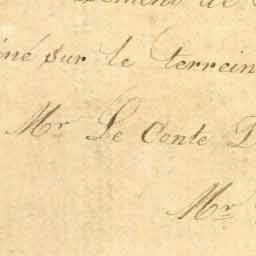 de
iné sur le terrein
Mr. Le Conte D
Mr.